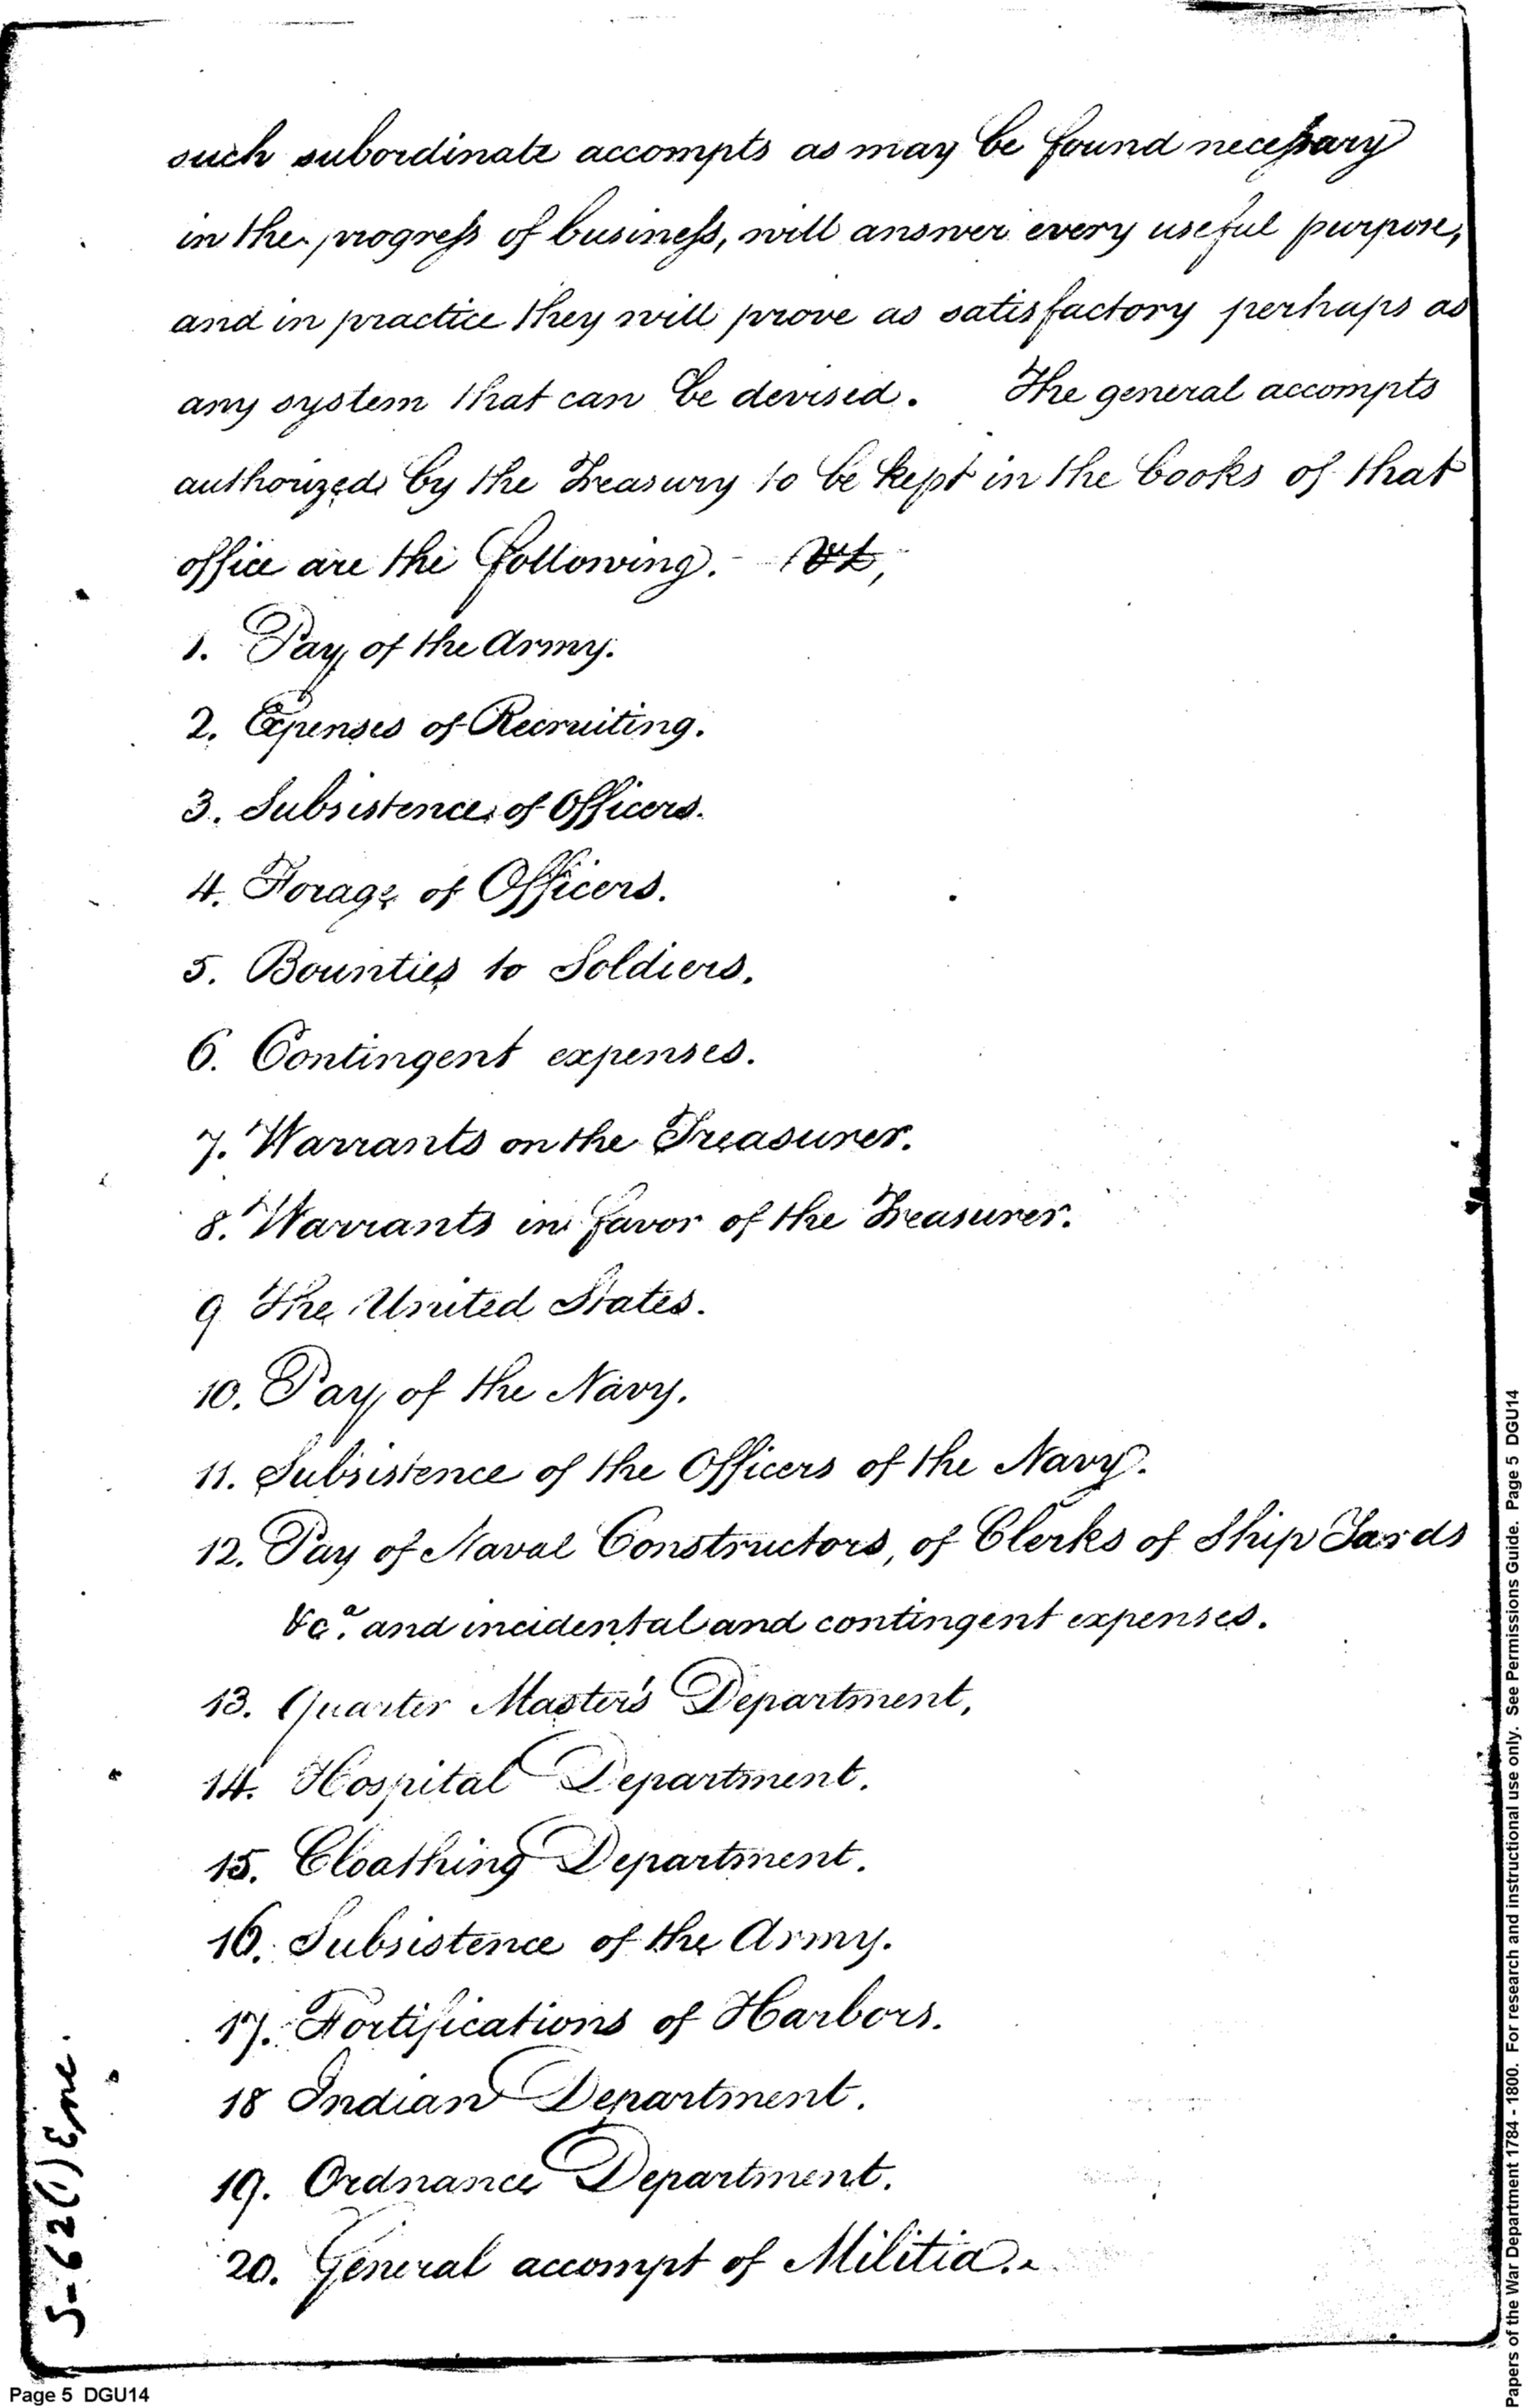 such subordinate accompts as may be found necessary
in the progress of business, will answer every useful purpose,
and in practice they will prove as satisfactory perhaps as
any system that can be devised. The general accompts
authorized by the Treasury to be kept in the books of that
office are the following. -
1. Pay of the Army.
2. Expenses of Recruiting.
3. Subsistence of Officers.
4. Forage of Officers.
5. Bounties to Soldiers.
6. Contingent expenses.
7. Warrants on the Treasurer.
8. Warrants in favor of the Treasurer.
9 The United States.
10. Pay of the Navy.
11. Subsistence of the Officers of the Navy.
12. Pay of Naval Constructors, of Clerks of Ship Yards
&ca. and incidental and contingent expenses.
13. Quarter Master's Department,
14. Hospital Department.
15. Cloathing Department.
16. Subsistence of the Army.
17. Fortifications of Harbors.
18 Indian Department.
19. Ordnance Department.
20. General accompt of Militia.
Page 5 DGU14
Papers of the War Department 1784 - 1800. For research and instructional use only. See Permissions Guide. Page 5 DGU14